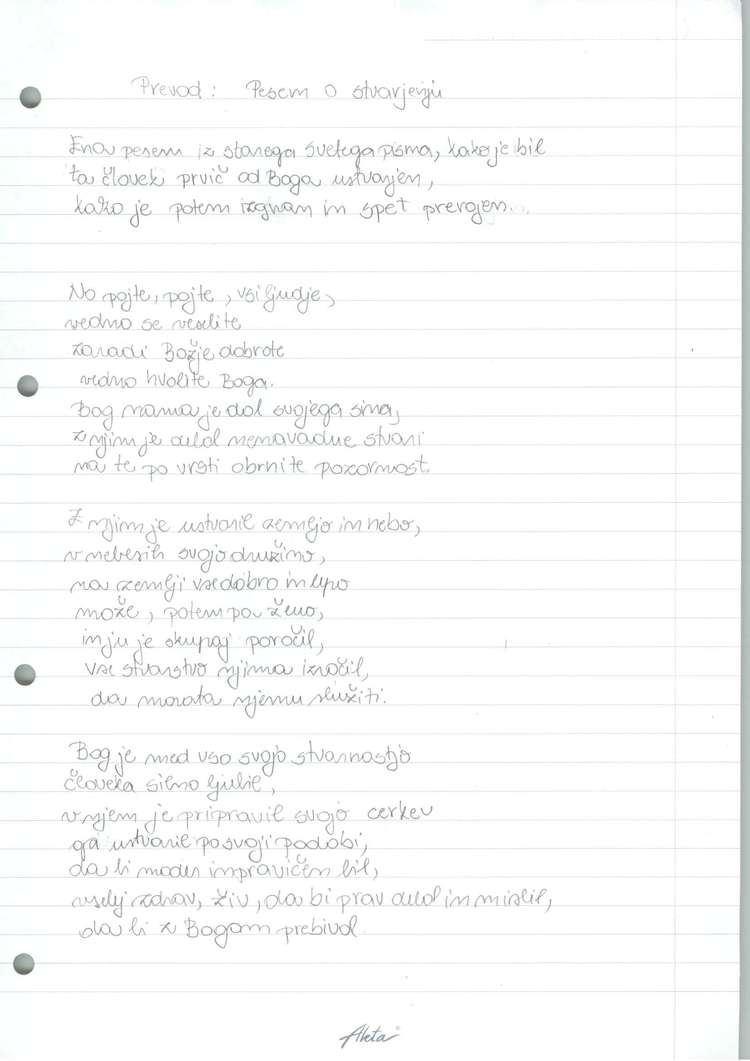 Prevod: Pesem o stvarjenju
Ena pesem iz starega svetega pisma, kako je bil
ta človek prvič od Boga ustvarjen,
kako je potem izgnan in spet prerojen...
No pojte, pojte, vsi ljudje,
vedno se veselite
zaradi Božje dobrote
vedno hvalite Boga.
Bog nama je dal svojega sina,
z njim je delal nenavadne stvari
na te po vrsti obrnite pozornost.
Z njim je ustvaril zemljo in nebo,
v nebesih svojo družino,
na zemlji vse dobro in lepo
može, potem pa ženo,
in ju je skupaj poročil,
vse stvarstvo njima izročil,
da morata njemu služiti.
Bog je med vso svojo stvarnostjo
človeka silno ljubil,
v njem je pripravil svojo cerkev
ga ustvaril po svoji podobi,
da bi moder in pravičen bil,
vselej zdrav, živ, da bi prav delal in mislil,
da bi z Bogam prebival.
Akta